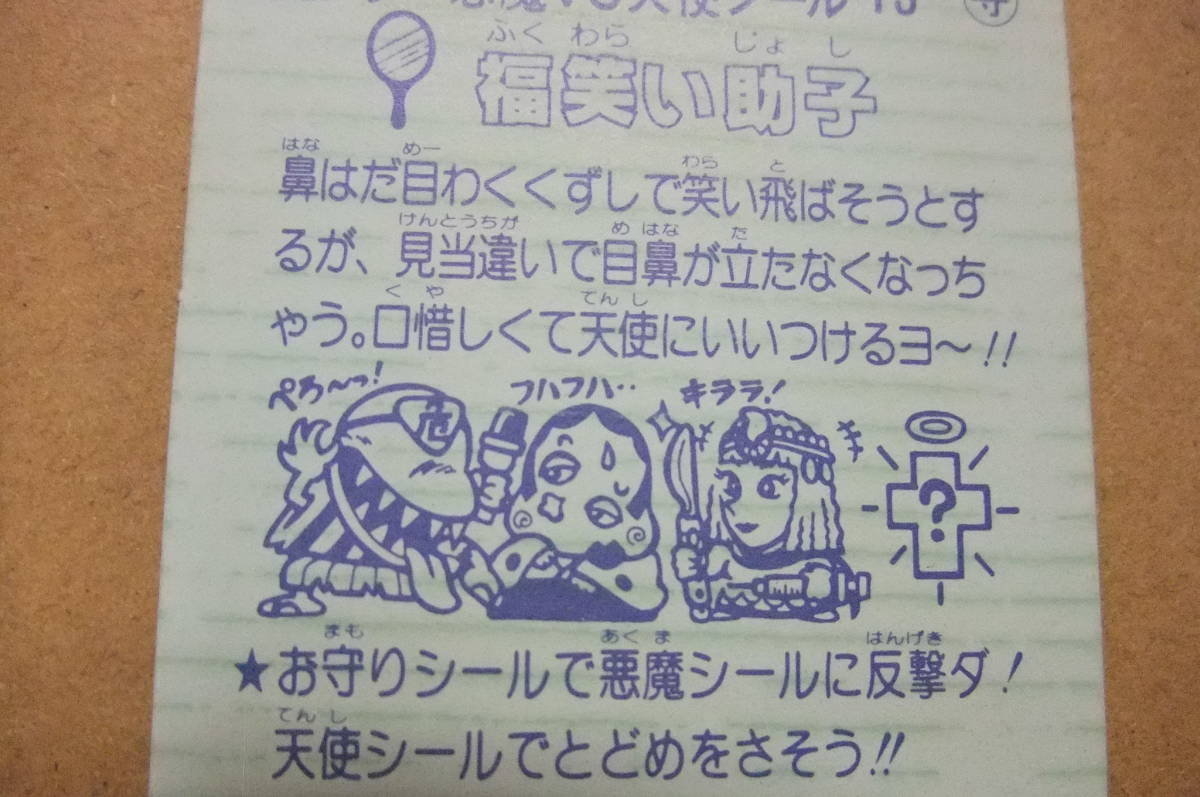 悪魔VS天使シール
守
ふくわらじょし
福笑い助子
はなめーわらと
鼻はだ目わくくずしで笑い飛ばそうとす
けんとうちがめはなた
るが、見当違いで目鼻が立たなくなっち
くやてんし
ゃう。口惜しくて天使にいいつけるヨ〜!!
ぺろ〜っ! フハフハ‥ キララ!
危
?
まもあくまはんげき
★お守りシールで悪魔シールに反撃ダ!
てんし
天使シールでとどめをさそう!!